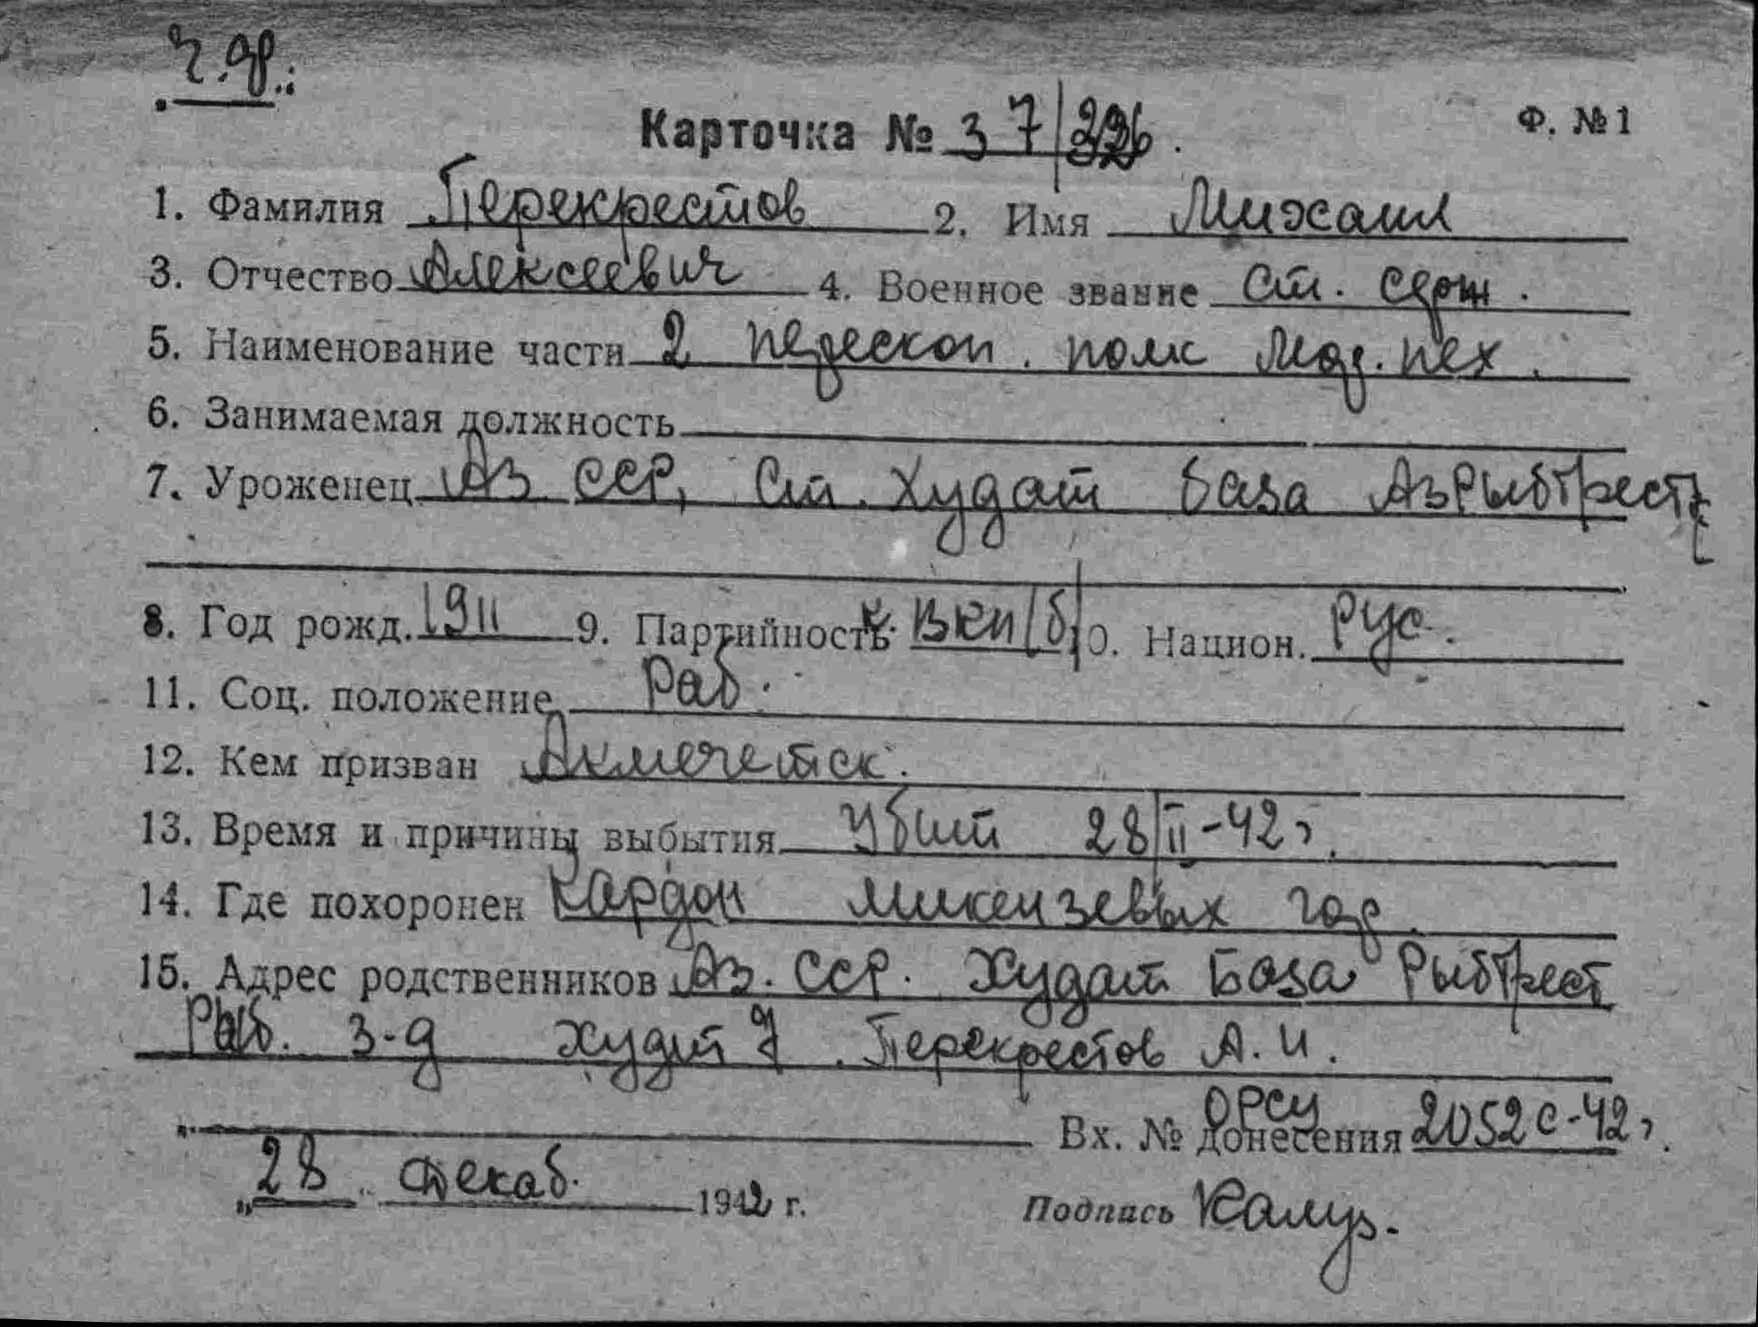 ч.ф.
Карточка № 37/226.
Ф. №1
1. Фамилия Перекрестов 2. Имя Михаил
3. Отчество Алексеевич 4. Военное звание Ст. серж.
5. Наименование части 2 перекоп. полк Мор. пех.
6. Занимаемая должность
7. Уроженец Аз ССР, Ст. Худат база АзРыбТреста
8. Год рожд. 1911 9. Партийность к. ВКП(б) 10. Национ. Рус.
11. Соц. положение Раб.
12. Кем призван Акмечетск.
13. Время и причины выбытия Убит 28/II-42 г.
14. Где похоронен Кардон Микензевых гор
15. Адрес родственников Аз. ССР. Худат База РыбТрест
Рыб. з-д Худат Перекрестов А. И.
ОРСУ
Вх. № донесения 2052с-42 г.
„28" Декаб. 1942 г. Подпись